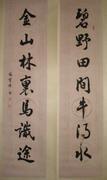 碧野田間牛得水
金山林裏馬識途